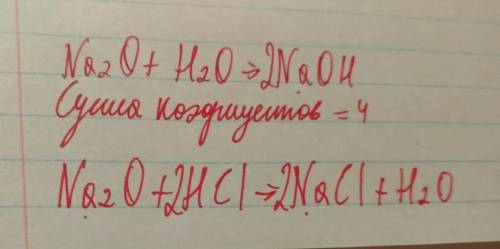 Na2O + H2O → 2NaOH
Сумма коэфициентов = 4
Na2O + 2HCl → 2NaCl + H2O